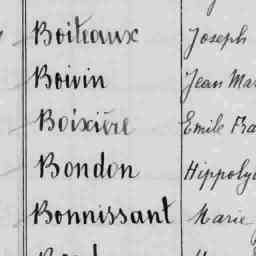 Boiteaux Joseph
Boivin Jean Mar
Boixière Emile Fra
Bondon Hippoly
Bonnissant Marie